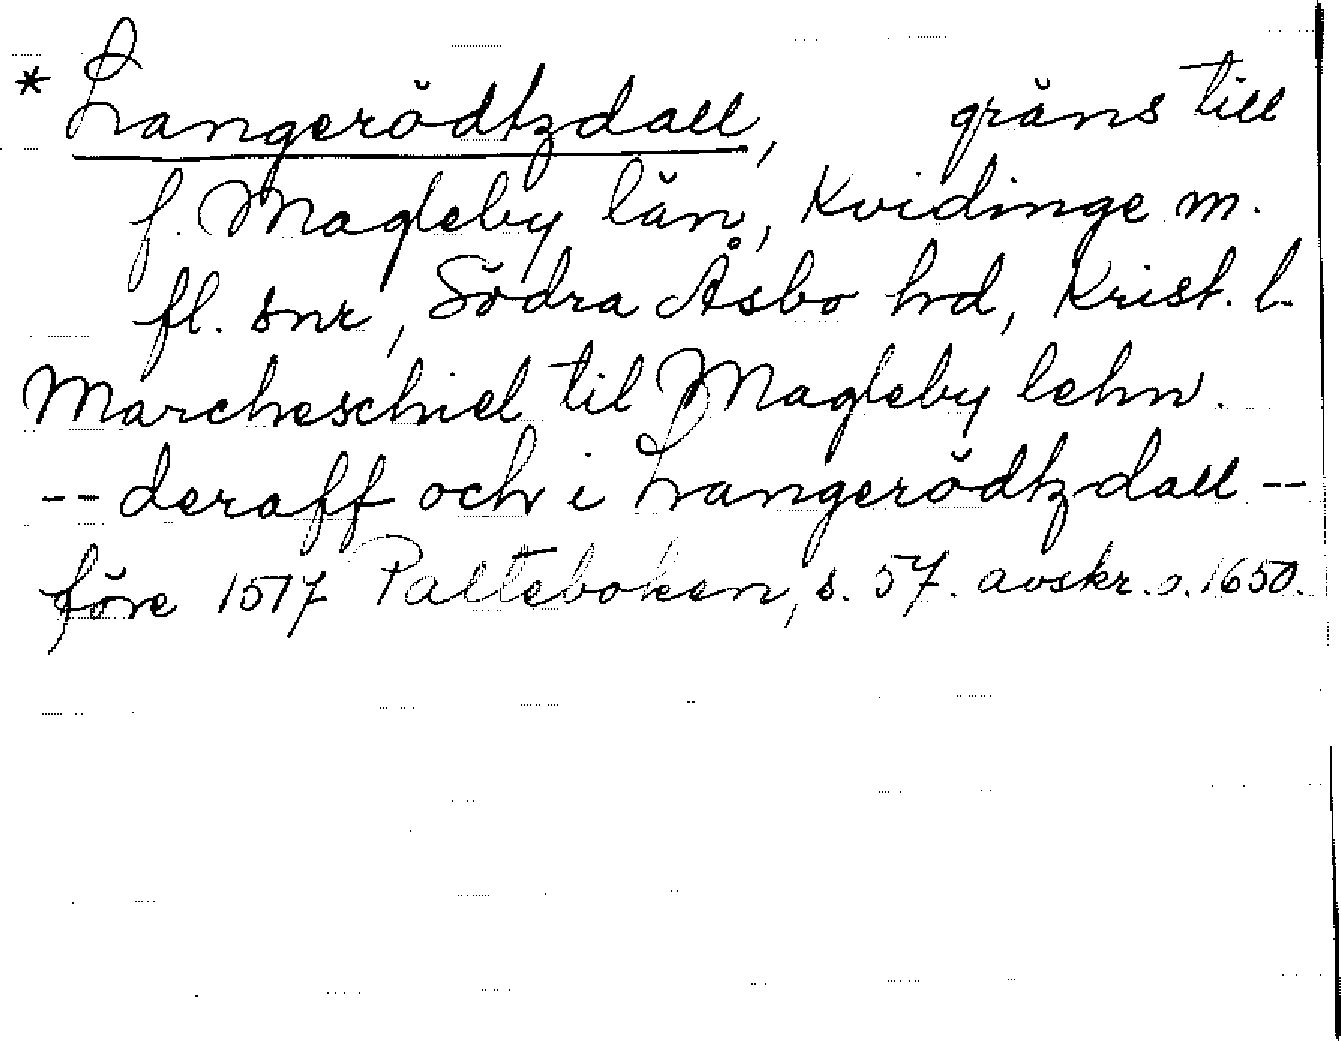 * Langerödtzdall, gräns till
f. Magleby län, Kvidinge m.
fl. snr, Södra Åsbo hd, Krist. l.
Marcheschiel til Magleby lehn.
-- deraff och i Langerödtzdall --
före 1517 Palteboken, s. 57. avskr. o. 1650.